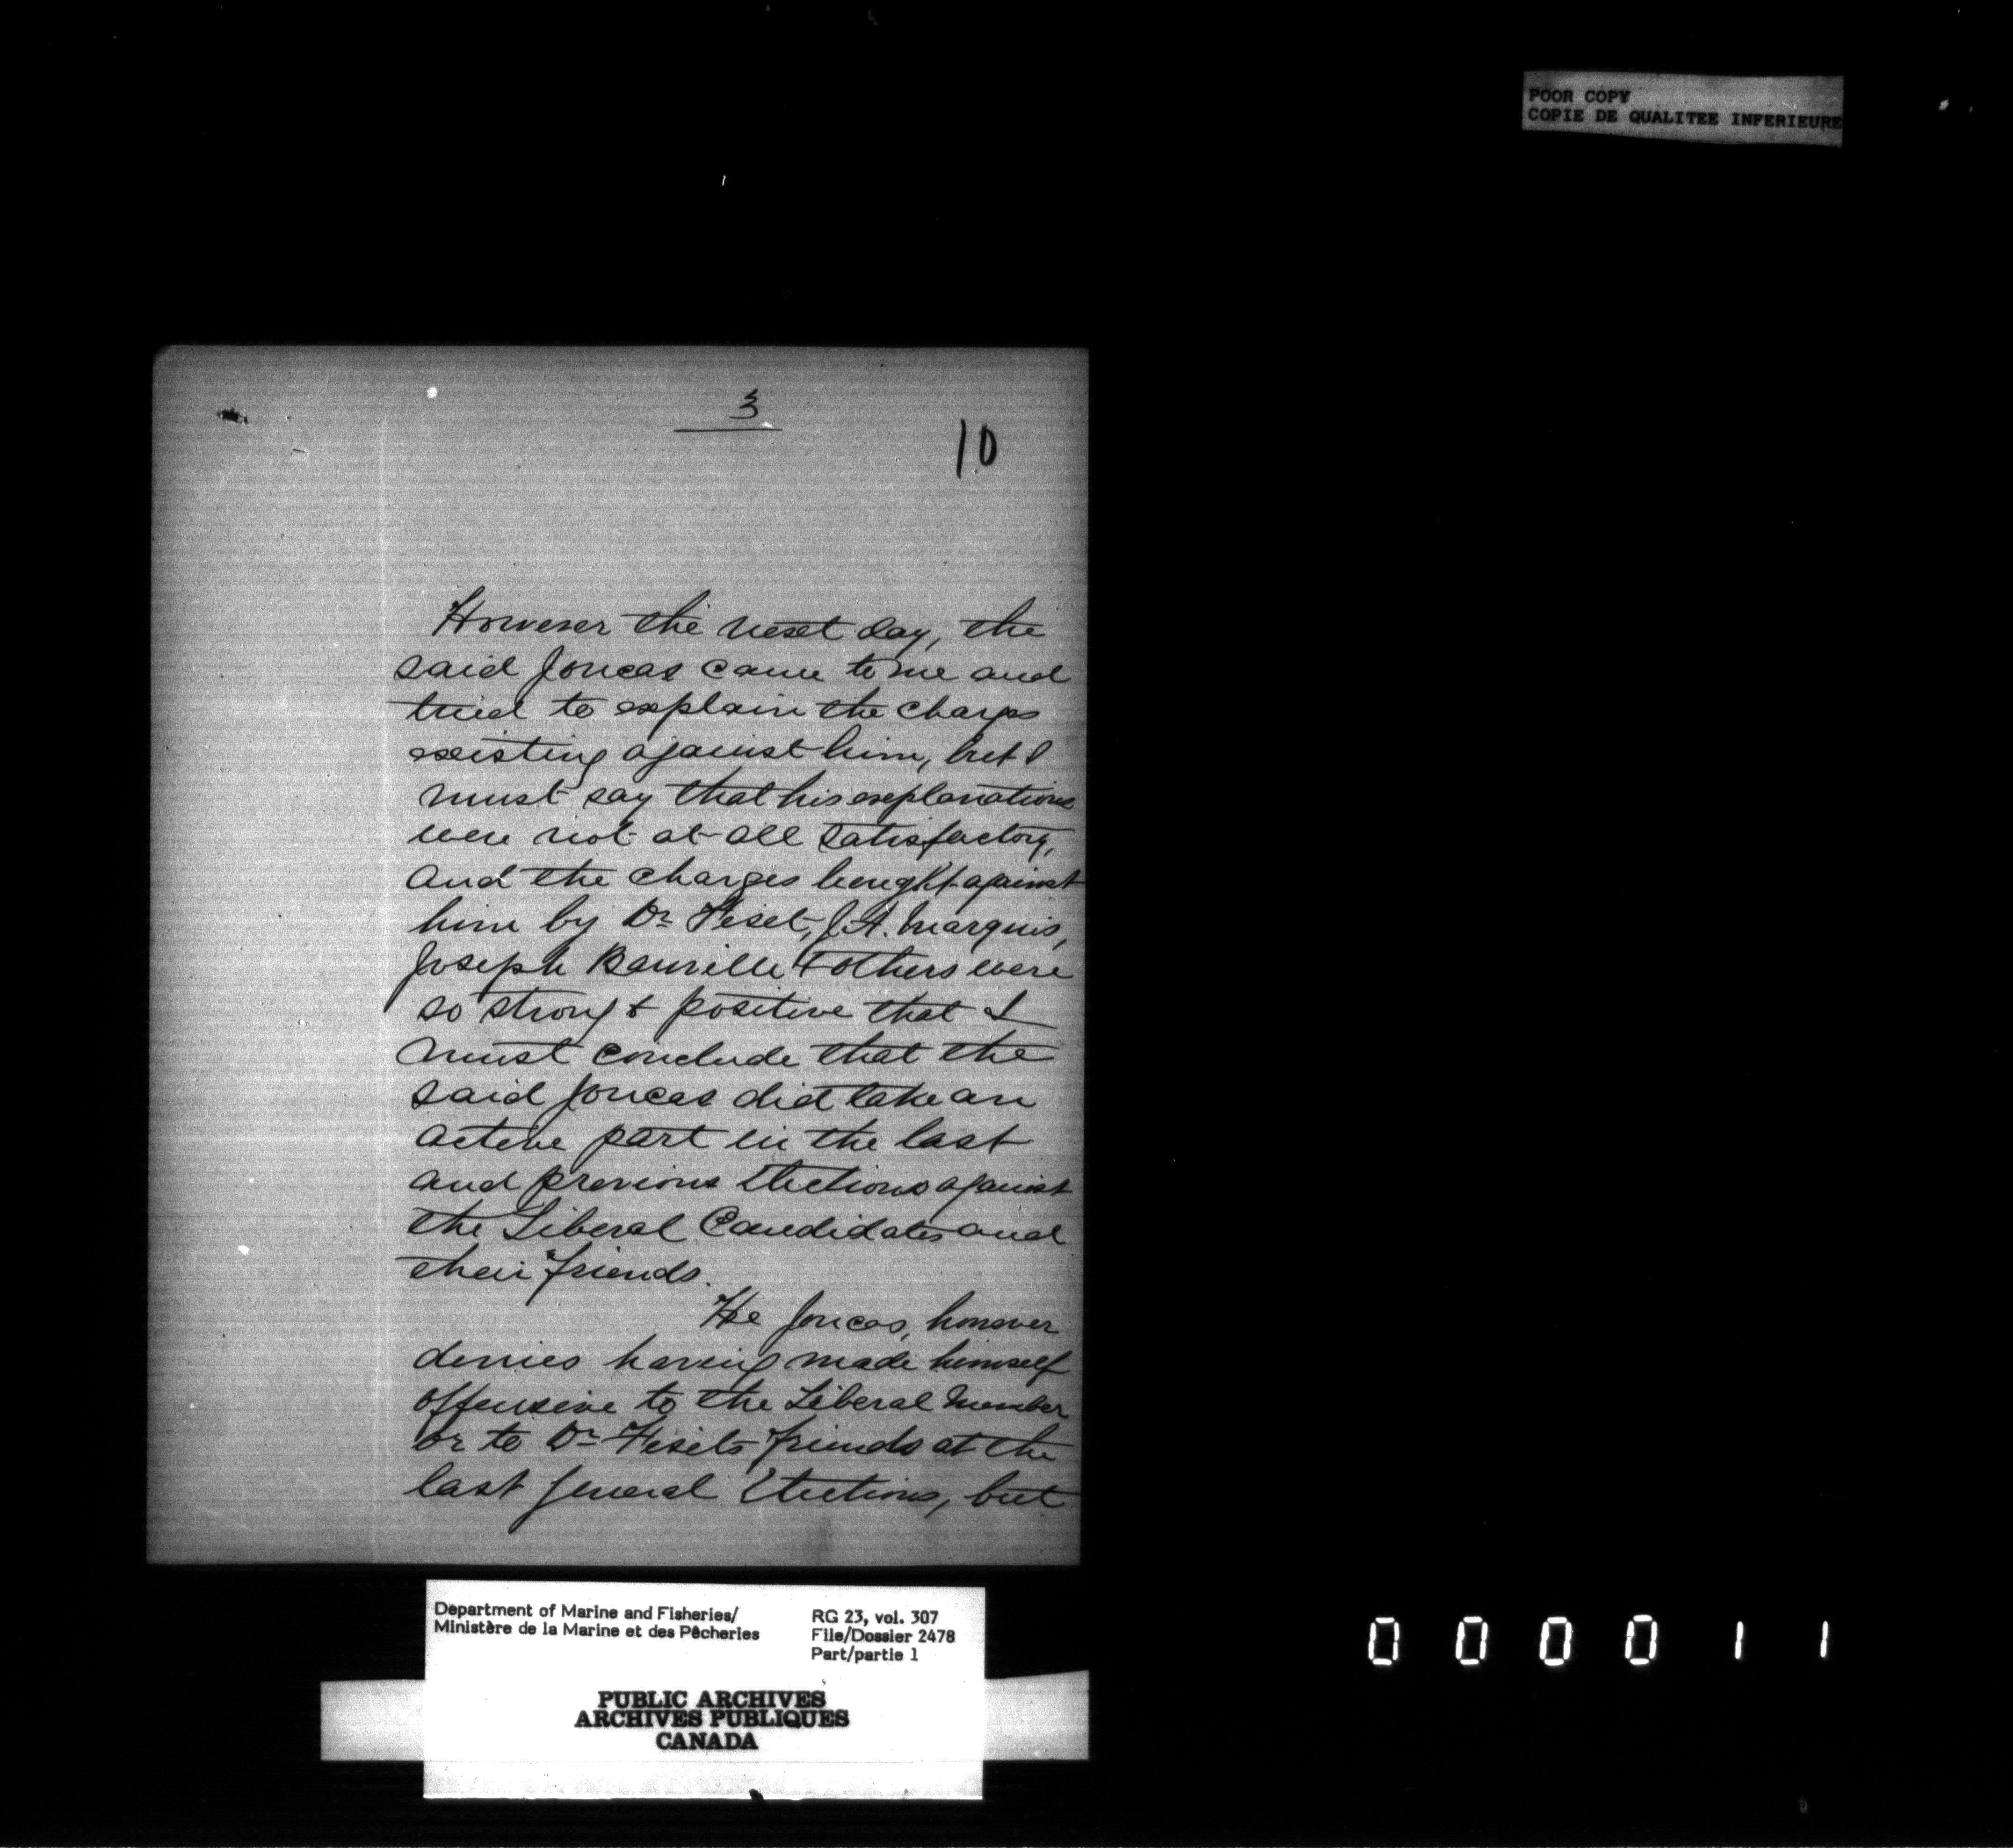 POOR COPY
COPIE DE QUALITEE INFERIEURE
3
10
However the next day, the
said Joncas came to me and
tried to explain the charges
existing against him, but I
must say that his explanations
were not at all satisfactory,
and the charges brought against
him by Dr Fiset, J.A. Marquis,
Joseph & others were
so strong & positive that I
must conclude that the
said Joncas did take an
active part in the last
and previous Elections against
the Liberal Candidates and
their friends.
He Joncas, however
denies having made himself
offensive to the Liberal Member
or to Dr Fiset's friends at the
last general Elections, but
Department of Marine and Fisheries/
Ministère de la Marine et des Pêcheries
RG 23, vol. 307
File/Dossier 2478
Part/partie 1
PUBLIC ARCHIVES
ARCHIVES PUBLIQUES
CANADA
000011